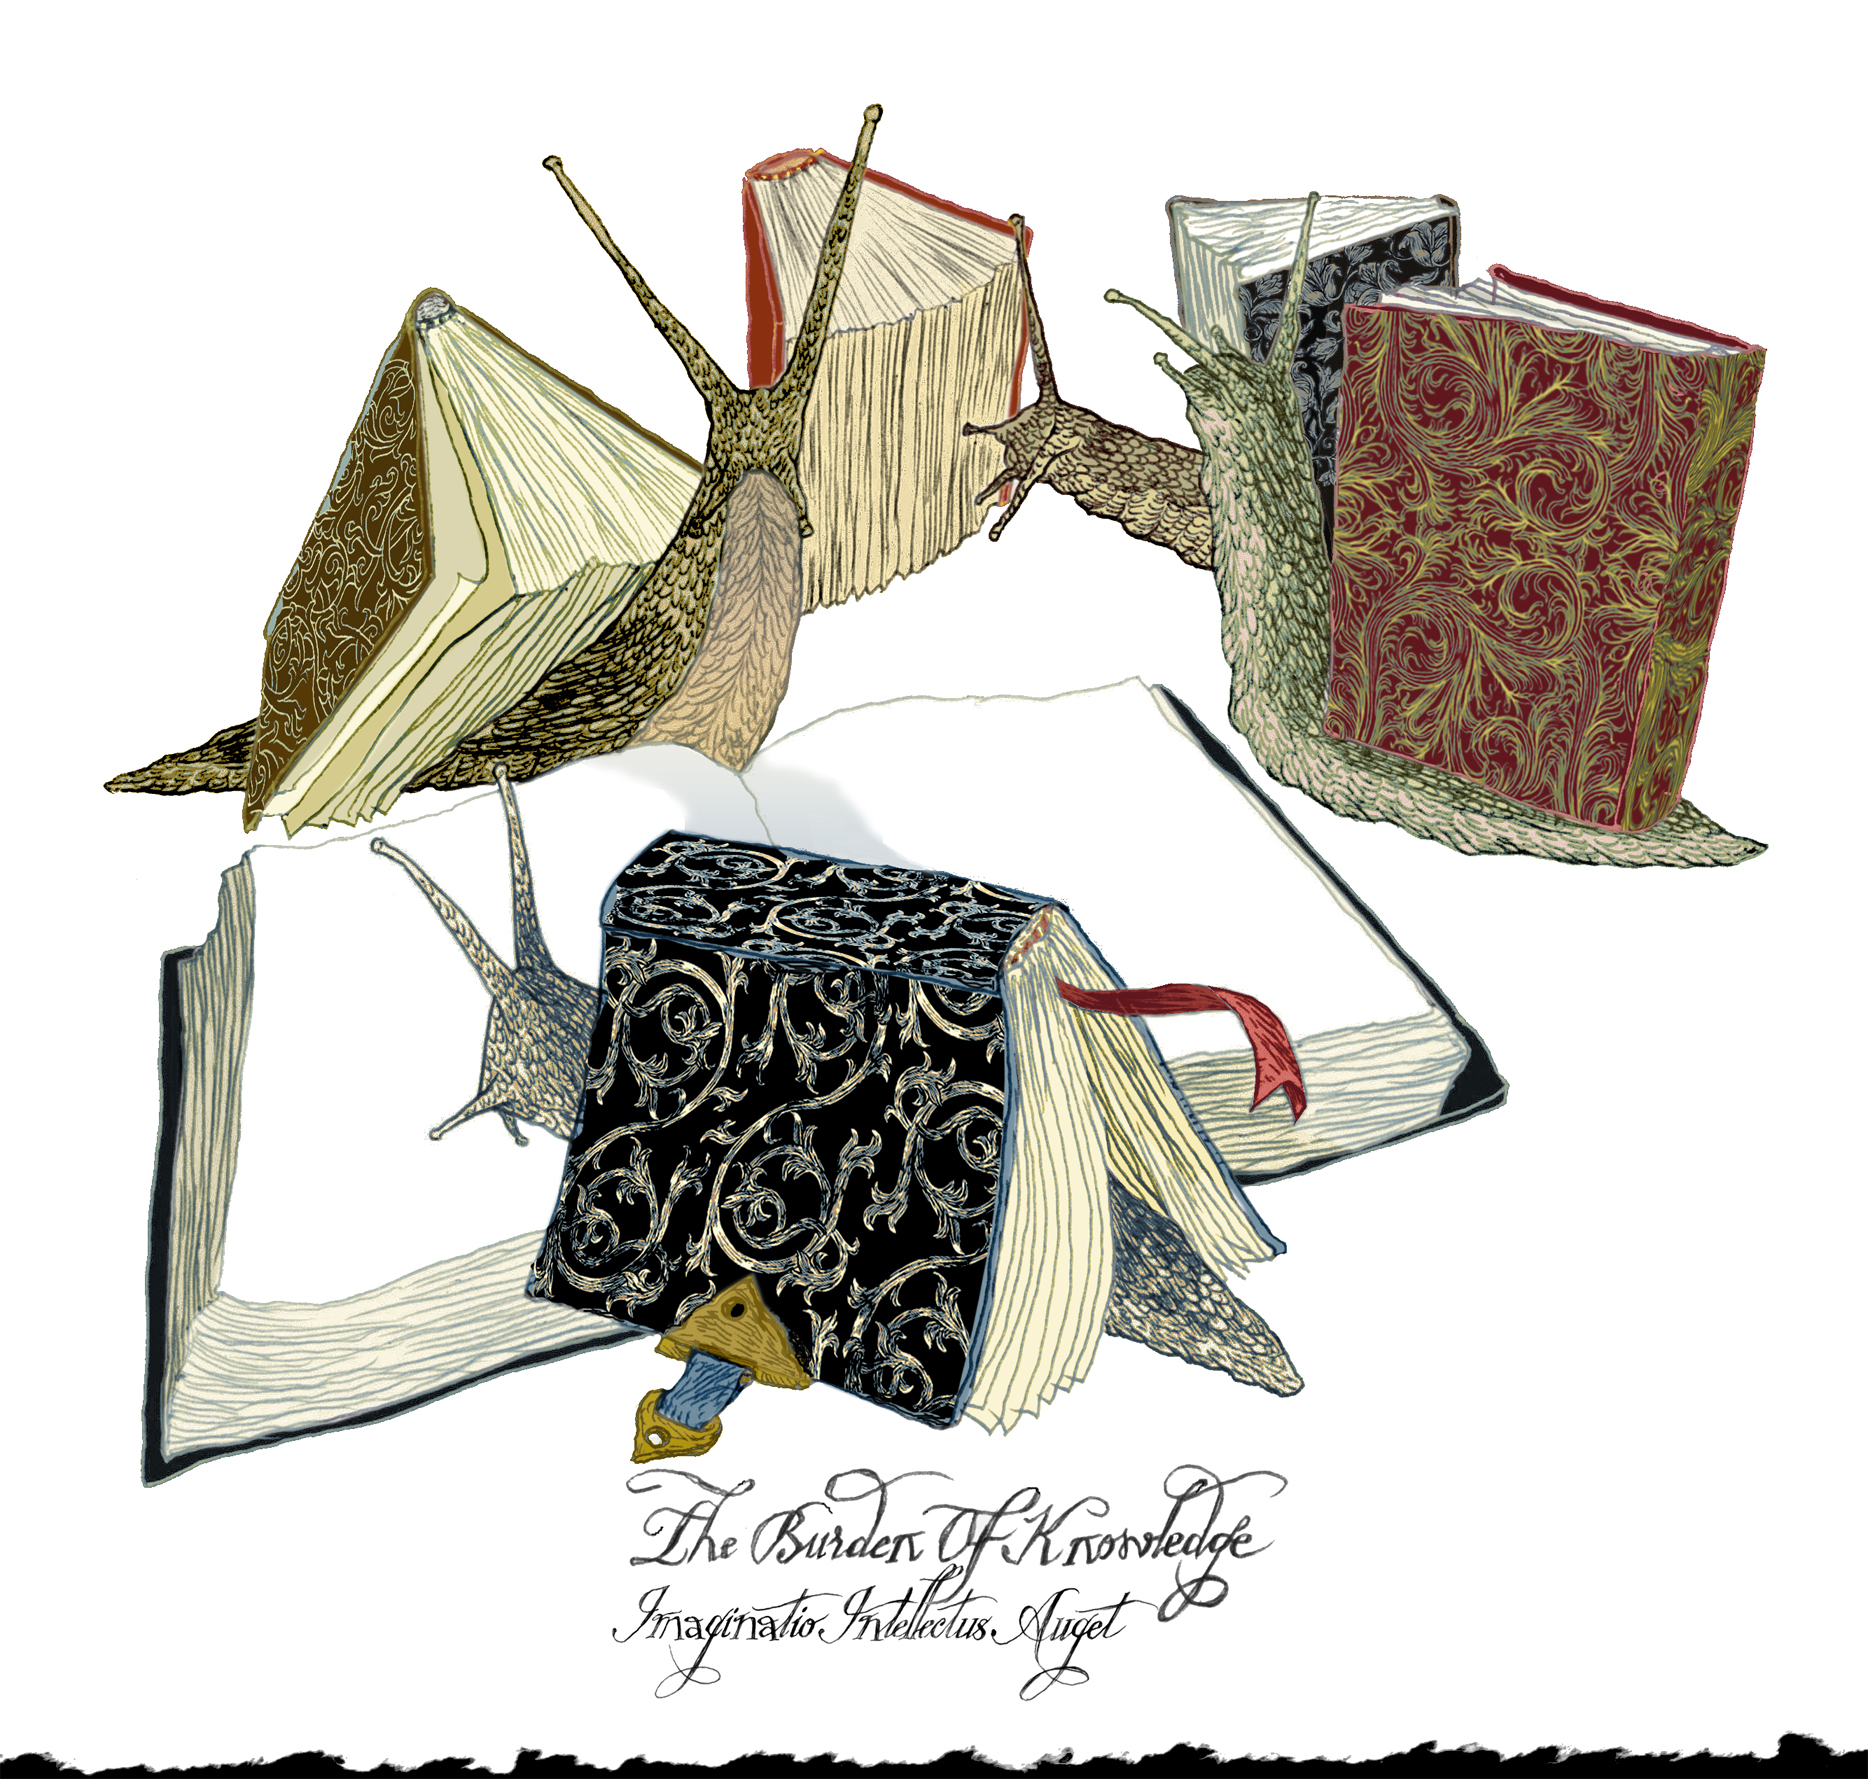 The Burden Of Knowledge
Imaginatio Intellectus Auget